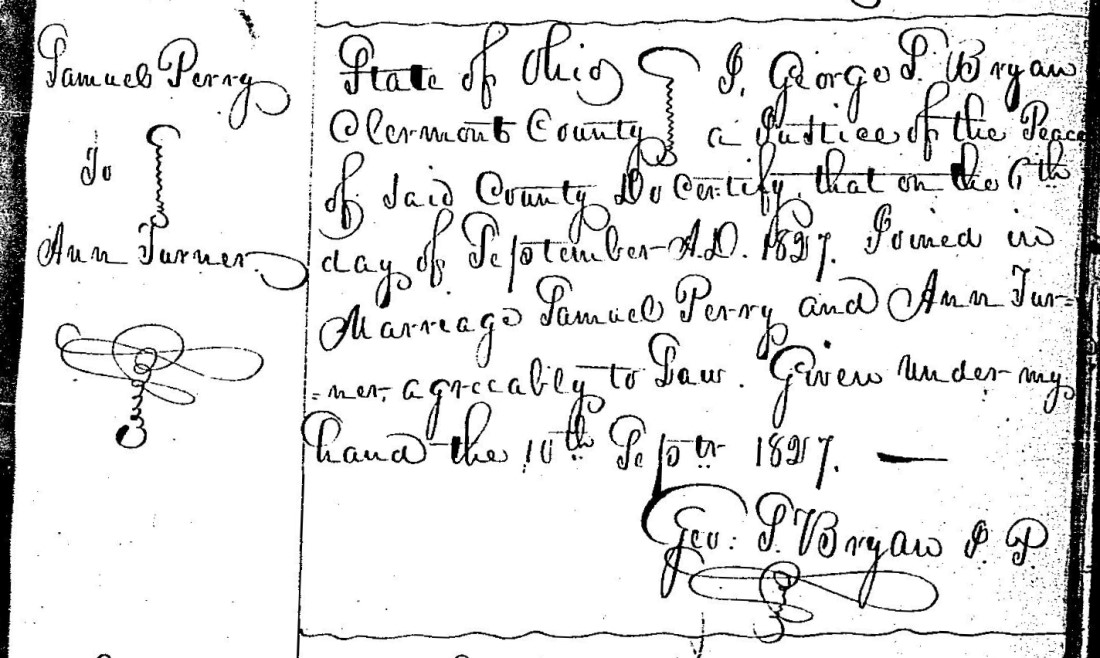 Samuel Perry
To
Ann Turner
State of Ohio
Clermont County
I, George S. Bryan
a Justice of the Peace
of said County Do Certify, that on the 6th
day of September A.D. 1827. Joined in
Marreage Samuel Perry and Ann Tur=
=ner, agreeably to Law. Given under my
hand the 10th Septr 1827. —
Geo: S. Bryan J P.